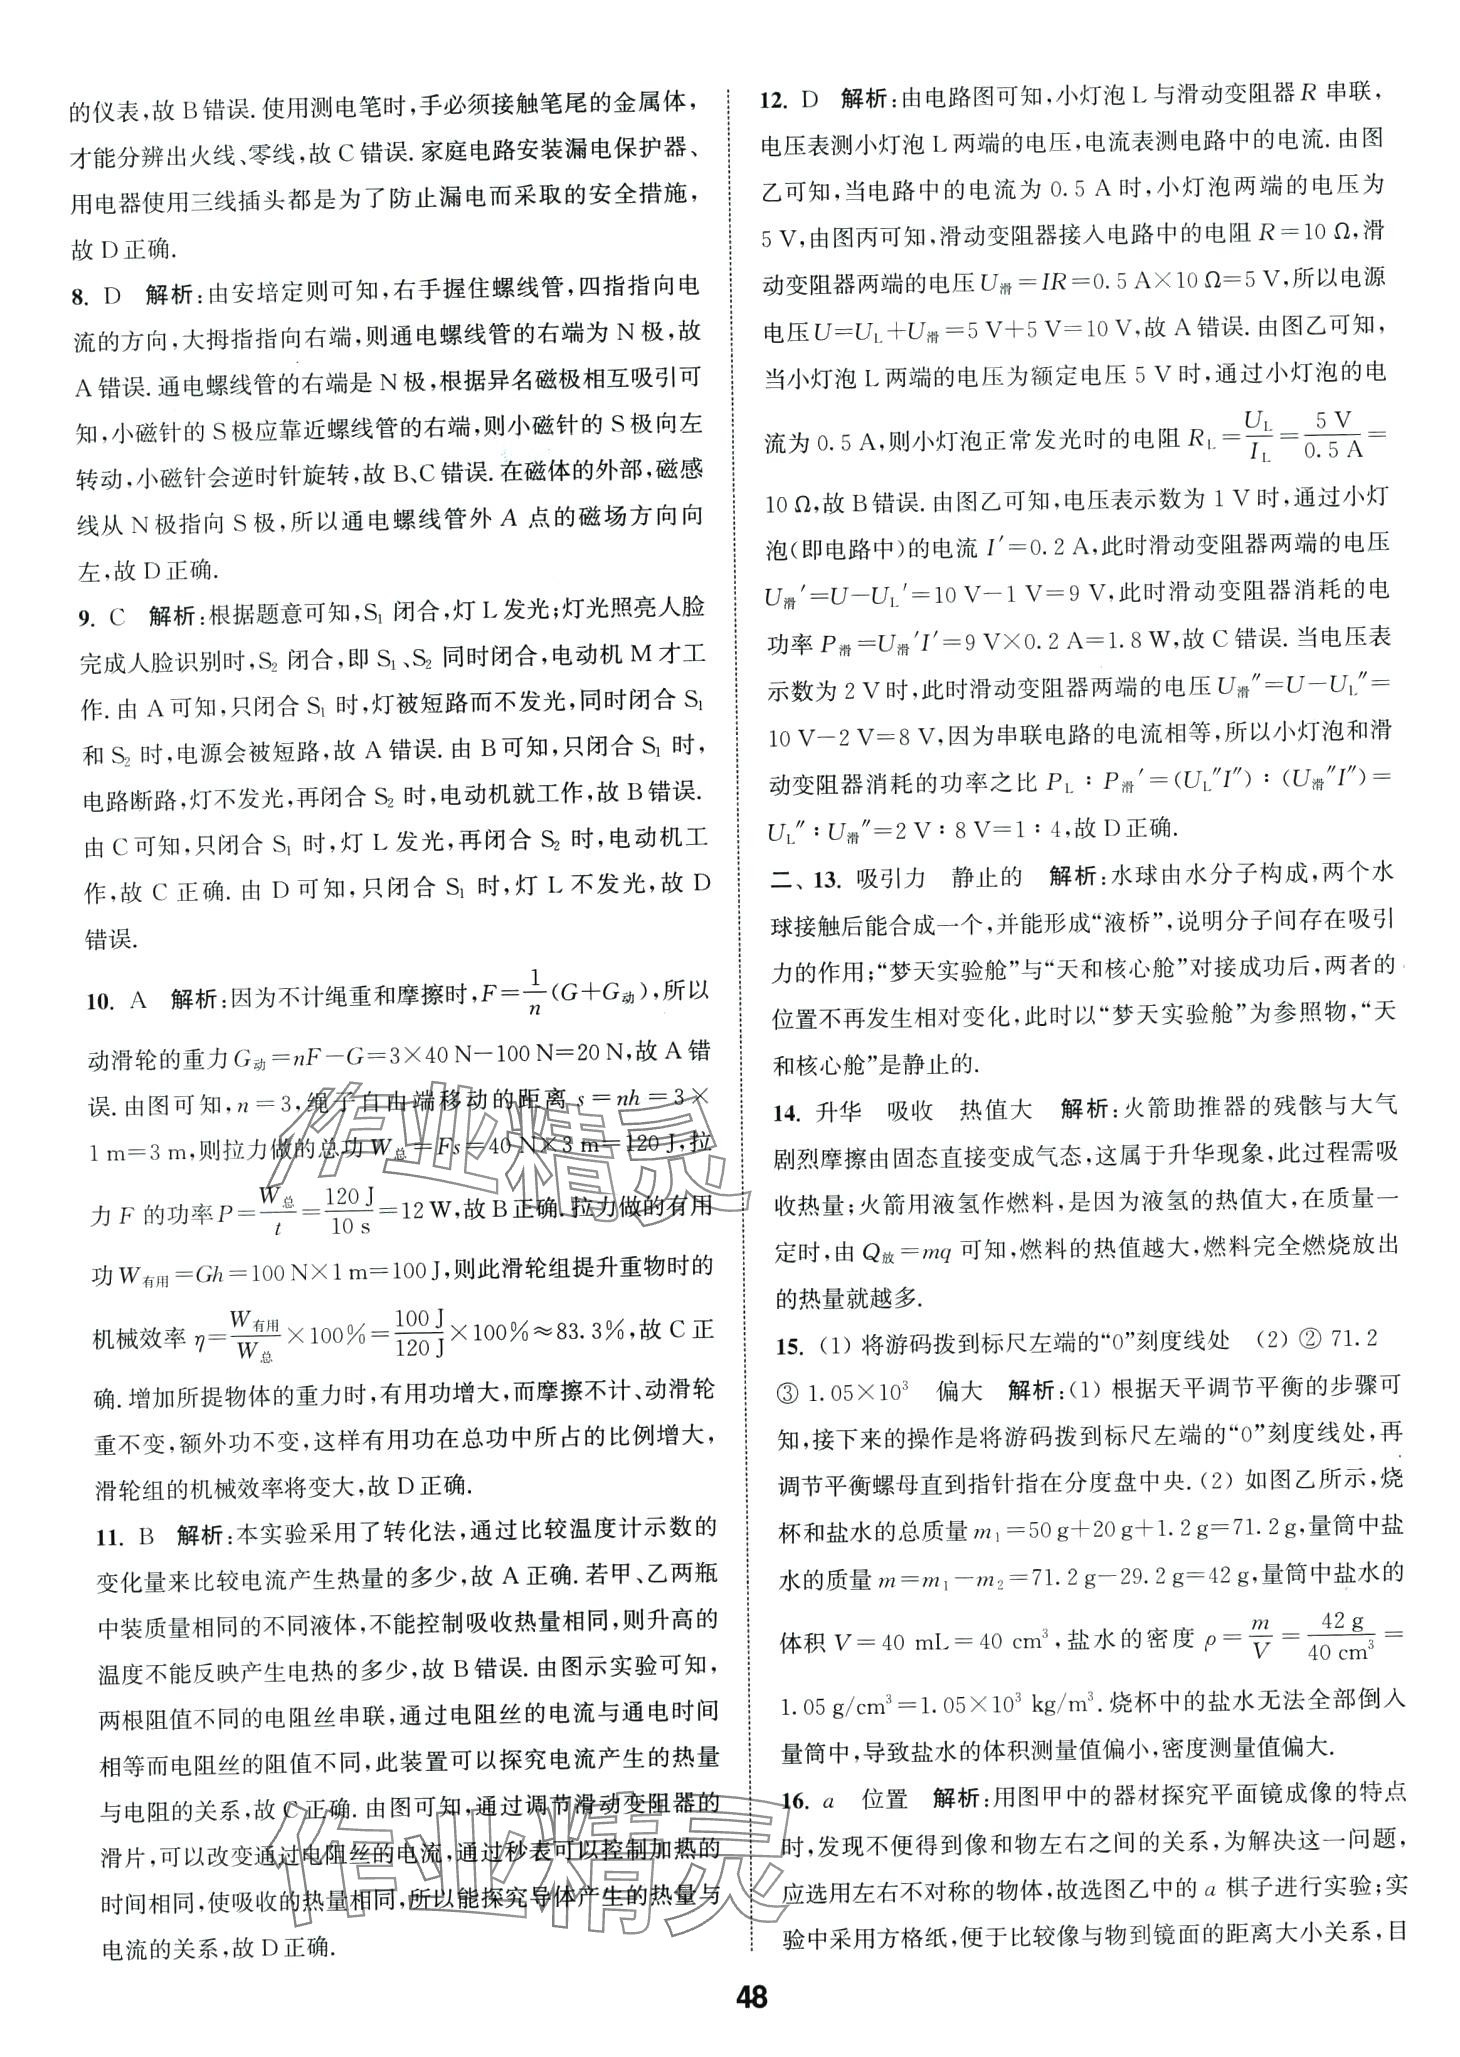 的仪表,故 B 错误. 使用测电笔时,手必须接触笔尾的金属体,
才能分辨出火线、零线,故 C 错误. 家庭电路安装漏电保护器、
用电器使用三线插头都是为了防止漏电而采取的安全措施,
故 D 正确.
8. D 解析:由安培定则可知,右手握住螺线管,四指指向电
流的方向,大拇指指向右端,则通电螺线管的右端为 N 极,故
A 错误. 通电螺线管的右端是 N 极,根据异名磁极相互吸引可
知,小磁针的 S 极应靠近螺线管的右端,则小磁针的 S 极向左
转动,小磁针会逆时针旋转,故 B、C 错误. 在磁体的外部,磁感
线从 N 极指向 S 极,所以通电螺线管外 A 点的磁场方向向
左,故 D 正确.
9. C 解析:根据题意可知,S₁ 闭合,灯 L 发光;灯光照亮人脸
完成人脸识别时,S₂ 闭合,即 S₁、S₂ 同时闭合,电动机 M 才工
作. 由 A 可知,只闭合 S₁ 时,灯被短路而不发光,同时闭合 S₁
和 S₂ 时,电源会被短路,故 A 错误. 由 B 可知,只闭合 S₁ 时,
电路断路,灯不发光,再闭合 S₂ 时,电动机就工作,故 B 错误.
由 C 可知,只闭合 S₁ 时,灯 L 发光,再闭合 S₂ 时,电动机工
作,故 C 正确. 由 D 可知,只闭合 S₁ 时,灯 L 不发光,故 D
错误.
10. A 解析:因为不计绳重和摩擦时,F=1/n(G+G动),所以
动滑轮的重力 G动=nF-G=3×40 N-100 N=20 N,故 A 错
误. 由图可知,n=3,绳子自由端移动的距离 s=nh=3×
1 m=3 m,则拉力做的总功 W总=Fs=40 N×3 m=120 J,拉
力 F 的功率 P=W总/t=120 J/10 s=12 W,故 B 正确. 拉力做的有用
功 W有用=Gh=100 N×1 m=100 J,则此滑轮组提升重物时的
机械效率 η=W有用/W总×100%=100 J/120 J×100%≈83.3%,故 C 正
确. 增加所提物体的重力时,有用功增大,而摩擦不计、动滑轮
重不变,额外功不变,这样有用功在总功中所占的比例增大,
滑轮组的机械效率将变大,故 D 正确.
11. B 解析:本实验采用了转化法,通过比较温度计示数的
变化量来比较电流产生热量的多少,故 A 正确. 若甲、乙两瓶
中装质量相同的不同液体,不能控制吸收热量相同,则升高的
温度不能反映产生电热的多少,故 B 错误. 由图示实验可知,
两根阻值不同的电阻丝串联,通过电阻丝的电流与通电时间
相等而电阻丝的阻值不同,此装置可以探究电流产生的热量
与电阻的关系,故 C 正确. 由图可知,通过调节滑动变阻器的
滑片,可以改变通过电阻丝的电流,通过秒表可以控制加热的
时间相同,使吸收的热量相同,所以能探究导体产生的热量与
电流的关系,故 D 正确.
12. D 解析:由电路图可知,小灯泡 L 与滑动变阻器 R 串联,
电压表测小灯泡 L 两端的电压,电流表测电路中的电流. 由图
乙可知,当电路中的电流为 0.5 A 时,小灯泡两端的电压为
5 V,由图丙可知,滑动变阻器接入电路中的电阻 R=10 Ω,滑
动变阻器两端的电压 U滑=IR=0.5 A×10 Ω=5 V,所以电源
电压 U=UL+U滑=5 V+5 V=10 V,故 A 错误. 由图乙可知,
当小灯泡 L 两端的电压为额定电压 5 V 时,通过小灯泡的电
流为 0.5 A,则小灯泡正常发光时的电阻 RL=UL/IL=5 V/0.5 A=
10 Ω,故 B 错误. 由图乙可知,电压表示数为 1 V 时,通过小灯
泡(即电路中)的电流 I′=0.2 A,此时滑动变阻器两端的电压
U滑′=U-UL′=10 V-1 V=9 V,此时滑动变阻器消耗的电
功率 P滑=U滑′I′=9 V×0.2 A=1.8 W,故 C 错误. 当电压表
示数为 2 V 时,此时滑动变阻器两端的电压 U滑″=U-UL″=
10 V-2 V=8 V,因为串联电路的电流相等,所以小灯泡和滑
动变阻器消耗的功率之比 PL∶P滑′=(UL″I″)∶(U滑″I″)=
UL″∶U滑″=2 V∶8 V=1∶4,故 D 正确.
二、13. 吸引力 静止的 解析:水球由水分子构成,两个水
球接触后能合成一个,并能形成“液桥”,说明分子间存在吸引
力的作用;“梦天实验舱”与“天和核心舱”对接成功后,两者的
位置不再发生相对变化,此时以“梦天实验舱”为参照物,“天
和核心舱”是静止的.
14. 升华 吸收 热值大 解析:火箭助推器的残骸与大气
剧烈摩擦由固态直接变成气态,这属于升华现象,此过程需吸
收热量;火箭用液氢作燃料,是因为液氢的热值大,在质量一
定时,由 Q放=mq 可知,燃料的热值越大,燃料完全燃烧放出
的热量就越多.
15. (1) 将游码拨到标尺左端的“0”刻度线处 (2) ② 71.2
③ 1.05×10³ 偏大 解析:(1) 根据天平调节平衡的步骤可
知,接下来的操作是将游码拨到标尺左端的“0”刻度线处,再
调节平衡螺母直到指针指在分度盘中央. (2) 如图乙所示,烧
杯和盐水的总质量 m₁=50 g+20 g+1.2 g=71.2 g,量筒中盐
水的质量 m=m₁-m₂=71.2 g-29.2 g=42 g,量筒中盐水的
体积 V=40 mL=40 cm³,盐水的密度 ρ=m/V=42 g/40 cm³=
1.05 g/cm³=1.05×10³ kg/m³. 烧杯中的盐水无法全部倒入
量筒中,导致盐水的体积测量值偏小,密度测量值偏大.
16. a 位置 解析:用图甲中的器材探究平面镜成像的特点
时,发现不便得到像和物左右之间的关系,为解决这一问题,
应选用左右不对称的物体,故选图乙中的 a 棋子进行实验;实
验中采用方格纸,便于比较像与物到镜面的距离大小关系,目
48
作业精灵
作业精灵